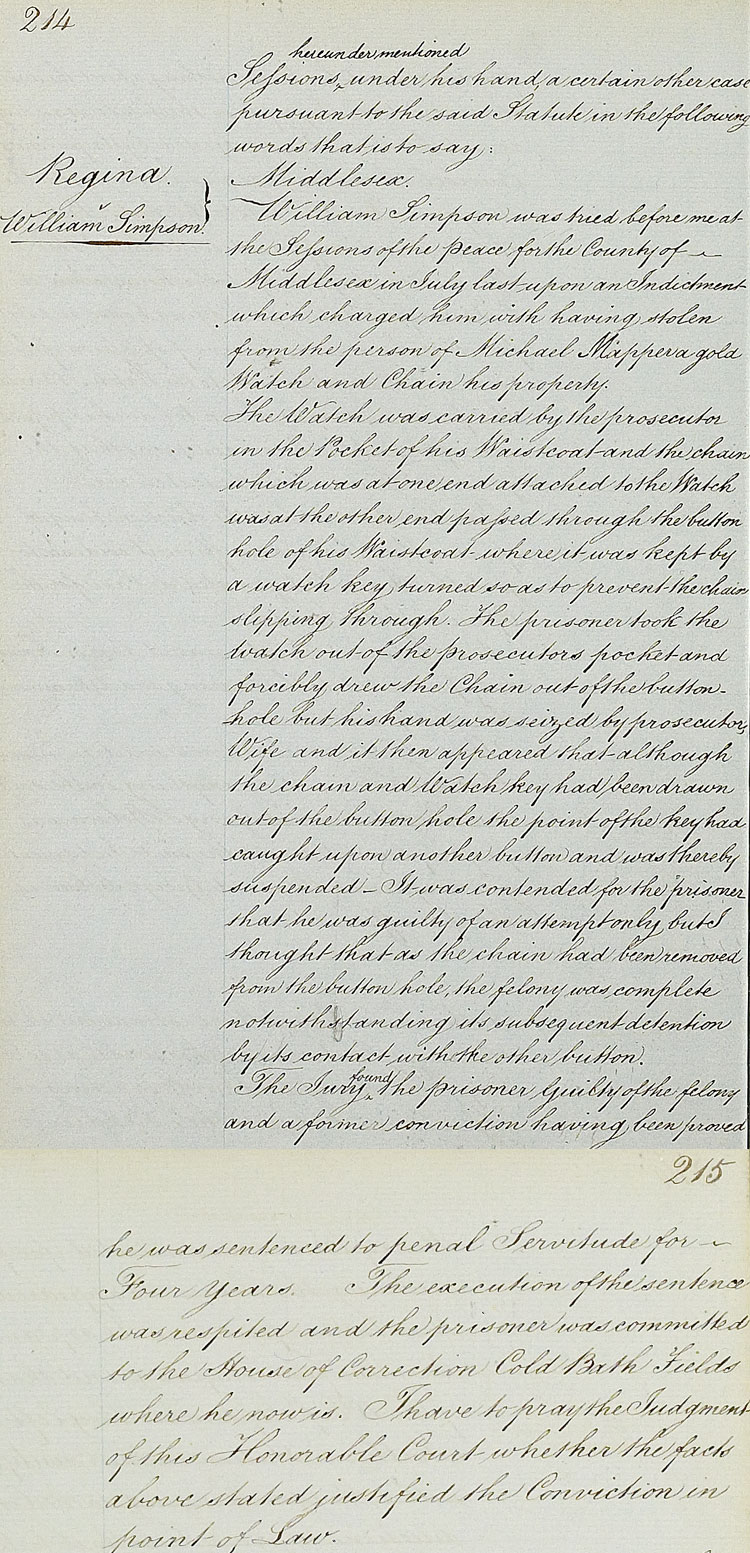 214
hereunder mentioned
Sessions, under his hand, a certain other case
pursuant to the said Statute in the following
words that is to say:
Regina.
v
William Simpson.
Middlesex.
William Simpson was tried before me at
the Sessions of the Peace for the County of
Middlesex in July last upon an Indictment
which charged him with having stolen
from the person of Michael Mapper a gold
Watch and Chain his property.
The Watch was carried by the prosecutor
in the Pocket of his Waistcoat and the chain
which was at one end attached to the Watch
was at the other end passed through the button
hole of his Waistcoat where it was kept by
a watch key turned so as to prevent the chain
slipping through. The prisoner took the
Watch out of the prosecutors pocket and
forcibly drew the Chain out of the button-
hole but his hand was seized by prosecutors
Wife and it then appeared that although
the chain and Watch key had been drawn
out of the button hole the point of the key had
caught upon another button and was thereby
suspended – It was contended for the prisoner
that he was guilty of an attempt only but I
thought that as the chain had been removed
from the button hole, the felony was complete
notwithstanding its subsequent detention
by its contact with the other button.
The Jury found the prisoner Guilty of the felony
and a former conviction having been proved
215
he was sentenced to penal Servitude for
Four Years. The execution of the sentence
was respited and the prisoner was committed
to the House of Correction Cold Bath Fields
where he now is. I have to pray the Judgment
of this Honorable Court whether the facts
above stated justified the Conviction in
point of Law.